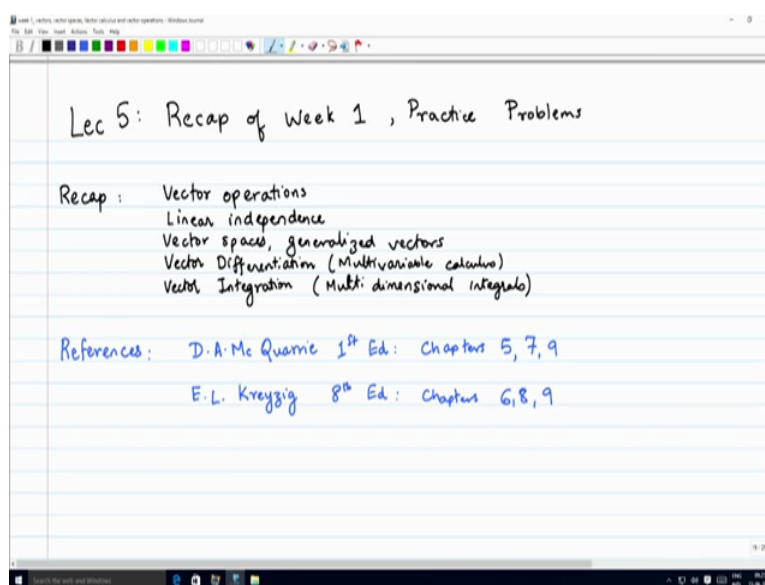 week 1, vectors, vector spaces, Vector calculus and vector operations - Windows Journal
File Edit View Insert Actions Tools Help
B I
Lec 5: Recap of Week 1, Practice Problems
Recap: Vector operations
Linear independence
Vector spaces, generalized vectors
Vector Differentiation (Multivariable calculus)
Vector Integration (Multi dimensional integrals)
References: D.A. Mc Quarrie 1st Ed: Chapters 5, 7, 9
E.L. Kreyzig 8th Ed: Chapters 6, 8, 9
Search the web and Windows